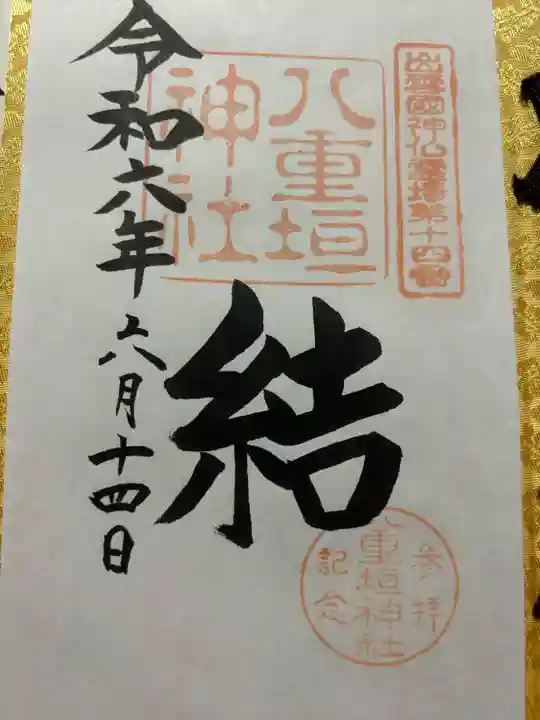 出雲國神仏霊場第十四番
八重垣
神社
結
令和六年六月十四日
参拝
八重垣神社
記念